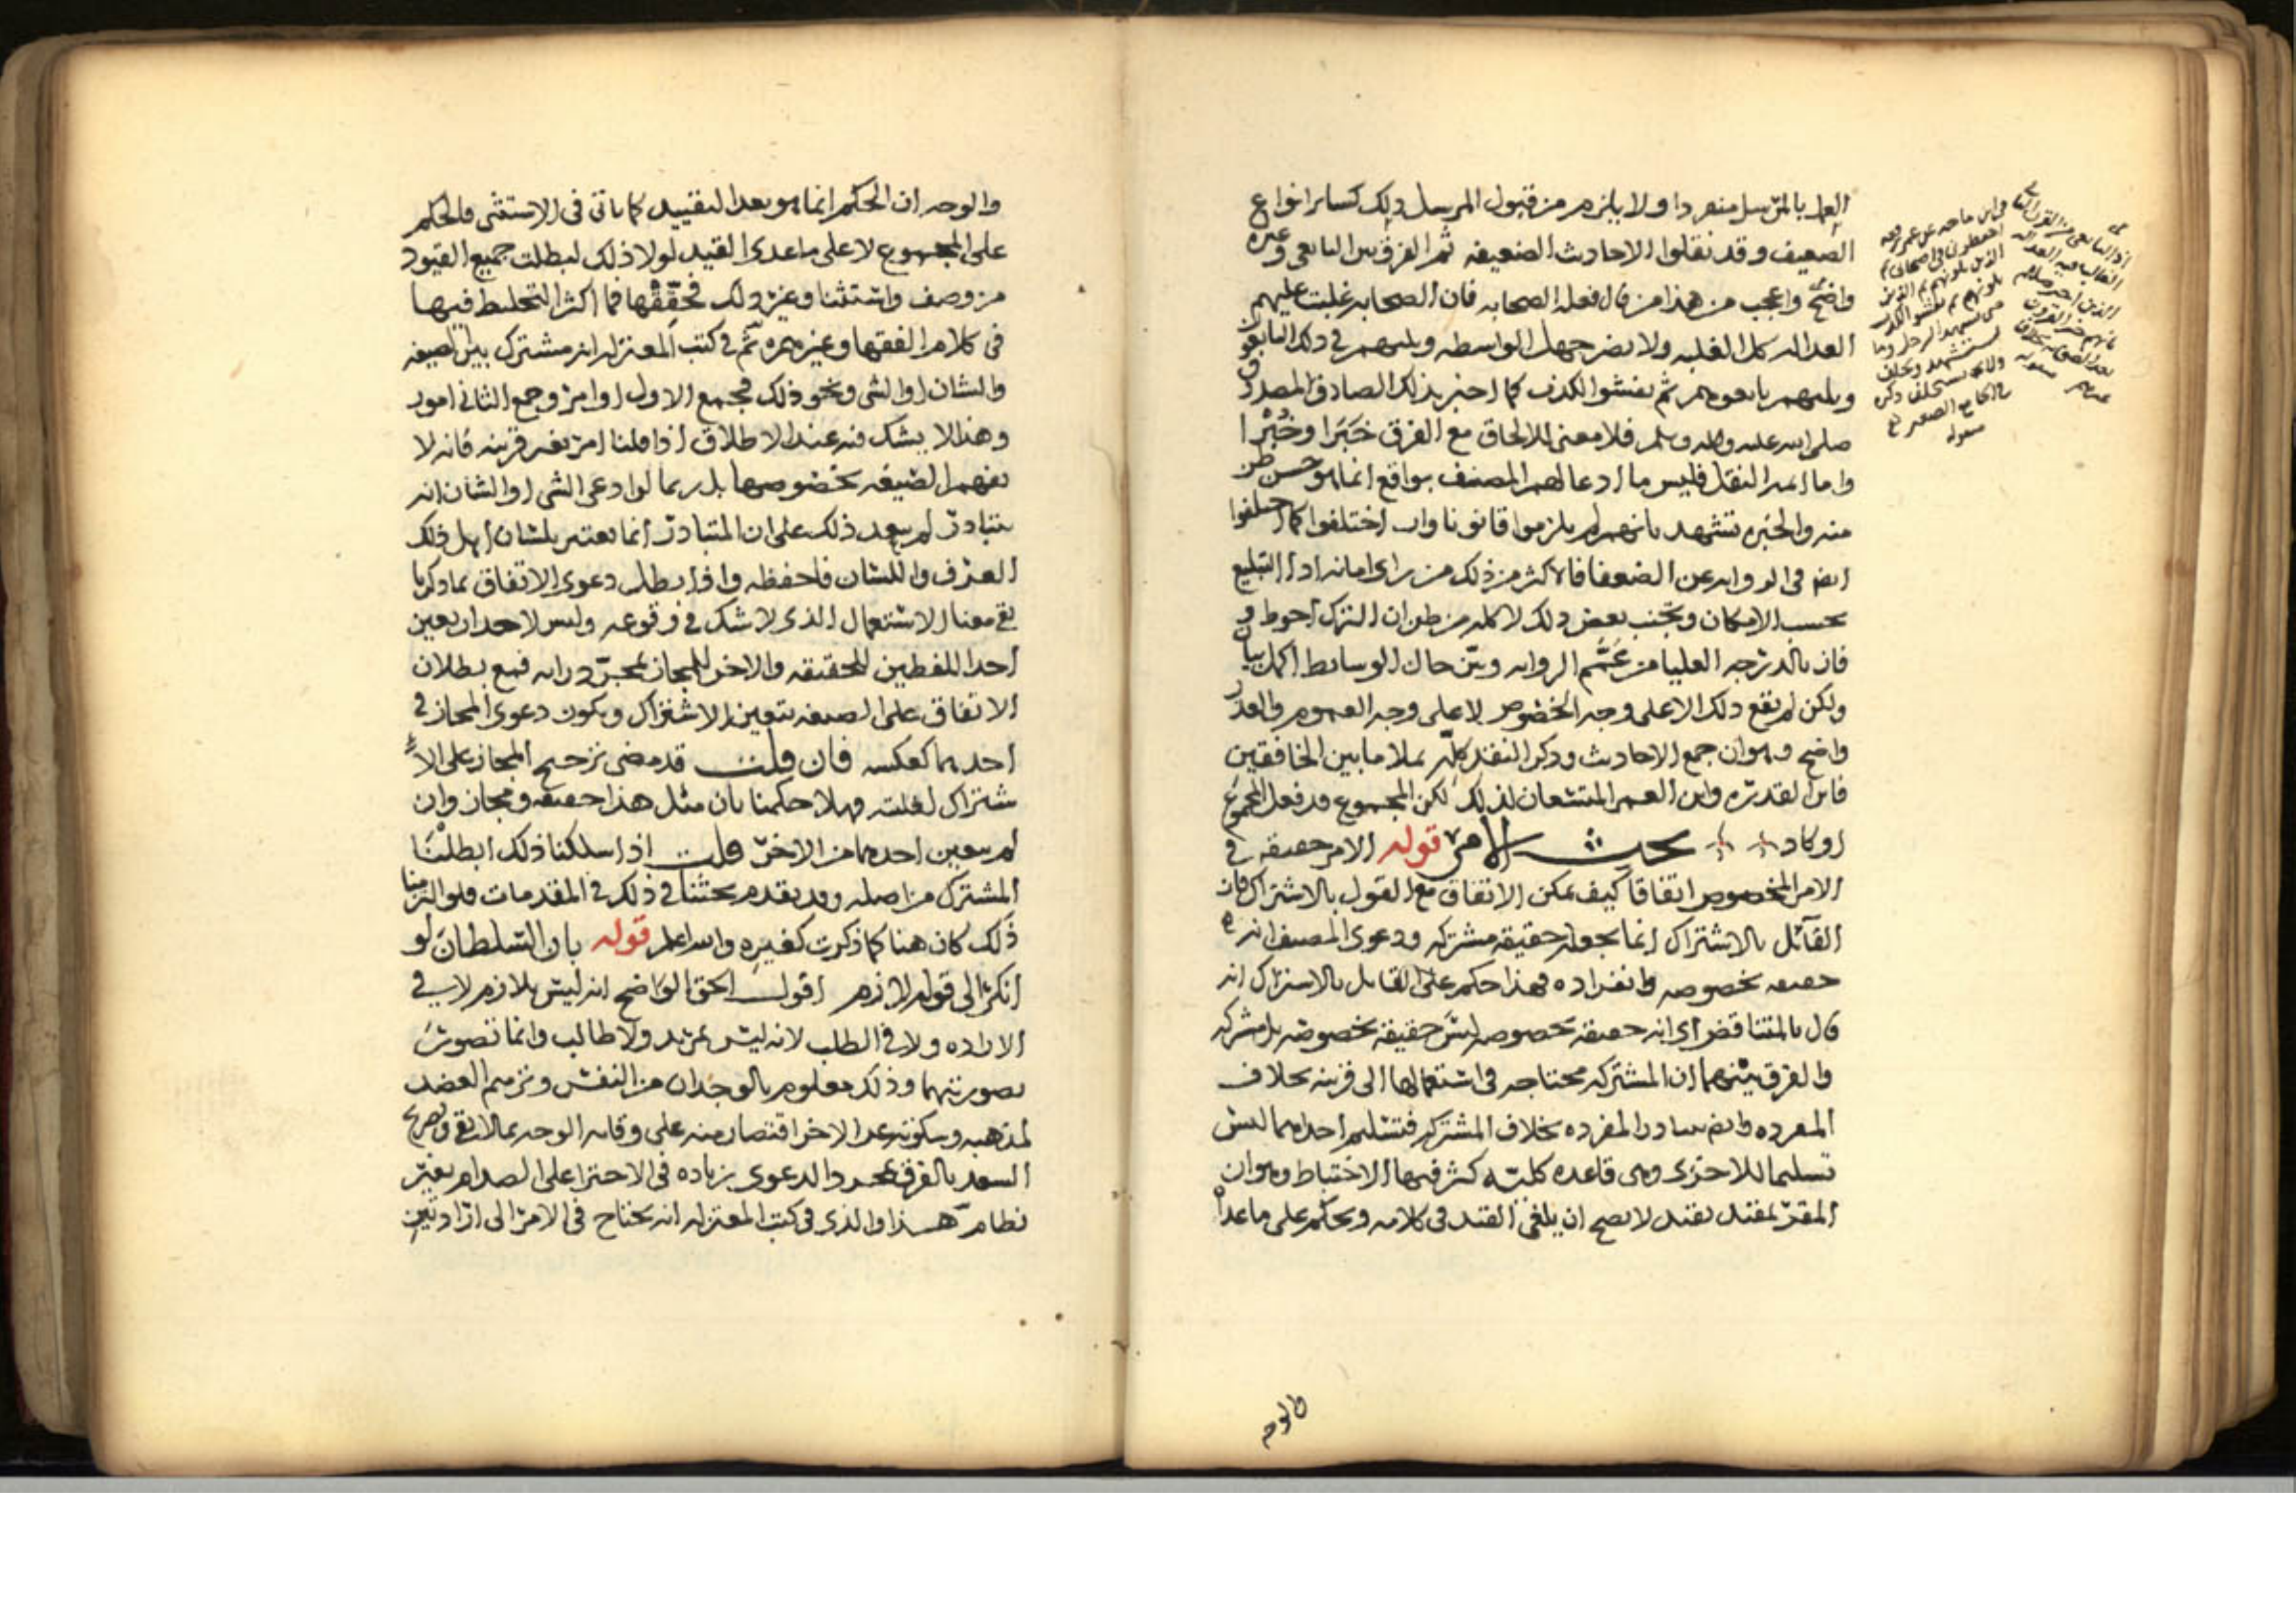 العمل بالمرسل منفردا ولا يلزم من قبول المرسل ذلك كسائر انواع
الضعيف وقد نقلوا الاحاديث الضعيفه ثم الفرق بين التابعي وغيره
واضح واعجب من هذا من قال فعله الصحابه فان الصحابه غلبت عليهم
العداله كل الغلبه ولا يضر جهل الواسطه ويليهم في ذلك التابعون
ويليهم تابعوهم ثم يفشوا الكذب كما اخبر بذلك الصادق المصدق
صلى الله عليه واله وسلم فلا معنى للالحاق مع الفرق خبرا وخبرا
واما ايمه النقل فليس ما ادعا لهم المصنف بواقع انما هو حسن ظن
منه والخبره تشهد بانهم لم يلزموا قانونا واب اختلفوا كما اختلفوا
ايضا في الروايه عن الضعفا فالاكثر من ذلك من راى امانه اداا التبليغ
بحسب الامكان وتجنب بعض ذلك لا كله من ظن ان الترك احوط و
فاز بالدرجه العليا من عمم الروايه وبين حال الوسايط اكمل بيان
ولكن لم يقع ذلك الا على وجه الخصوص لا على وجه العموم والعذر
واضح وهو ان جمع الاحاديث وذكر النقد كله يملا ما بين الخافقين
فاين القدره واين العمر المتسعان لذلك لكن المجموع قد فعل المجموع
او كاد بحث الامر قوله الامر حقيقه في
الامر المخصوص اتفاقا كيف يمكن الاتفاق مع القول بالاشتراك فان
القائل بالاشتراك انما يجعله حقيقه مشتركه ودعوى المصنف انه
حقيقه بخصوصه وانفراده فهذا حكم على القايل بالاشتراك انه
قال بالمتناقض اي انه حقيقه بخصوصه ليس حقيقه بخصوصه بل مشتركه
والفرق بينهما ان المشتركه محتاجه في استعمالها الى قرينه بخلاف
المفرده وايضا تبادر المفرده بخلاف المشتركه فتسليم احداهما ليس
تسليما للاخرى وهي قاعده كليه كثر فيها الاختباط وهو ان
المقر بمقيد بقيد لا يصح ان يلغى القيد في كلامه ويحكم على ما عداه
والوجه
والوجه ان الحكم انما هو بعد التقييد كما ياتي في الاستثنى فالحكم
على المجموع لا على ما عدى القيد لولا ذلك لبطلت جميع القيود
من وصف واستثنا وغير ذلك فحققها فما اكثر التخليط فيها
في كلام الفقها وغيرهم ثم في كتب المعتزله انه مشترك بين الصيغه
والشان او الشي ونحو ذلك فجمع الاول اوامر وجمع الثاني امور
وهذا لا يشك فيه عند الاطلاق اذا قلنا امر بغير قرينه فانه لا
يفهم الصيغه بخصوصها بل ربما لو ادعى الشي او الشان انه
يتبادر لم يبعد ذلك على ان المتبادر انما يعتبر بلسان اهل ذلك
العرف واللسان فاحفظه واذا بطل دعوى الاتفاق بما ذكرنا
بقي معنا الاستعمال الذي لا شك في وقوعه وليس لاحد ان يعين
احد اللفظين للحقيقه والاخر للمجاز بمجرد رايه فمع بطلان
الاتفاق على الصيغه يتعين الاشتراك ويكون دعوى المجاز في
احدهما كعكسه فان قلت قد مضى ترجيح المجاز على الا
شتراك لغلبته فهلا حكمنا بان مثل هذا حقيقه ومجاز وان
لم يتعين احدهما من الاخر قلت اذا سلكنا ذلك ابطلنا
المشترك من اصله وقد تقدم بحثنا في ذلك في المقدمات فلو التزمنا
ذلك كان هنا كما ذكرت كغيره والله اعلم قوله بان السلطان لو
انكر الى قوله لازم اقول الحق الواضح انه ليس بلازم لا في
الاراده ولا في الطلب لانه ليس بمريد ولا طالب وانما تصور
بصورتهما وذلك معلوم بالوجدان من النفس وترميم العضد
لمذهبه وسكوته عن الاخر اقتصار منه على وقايه الوجه بما لا يقي وتصريح
السعد بالفرق بمجرد الدعوى بزياده في الاجترا على الصدام بغير
نظام هذا والذي في كتب المعتزله انه يحتاج في الامر الى ارادتين